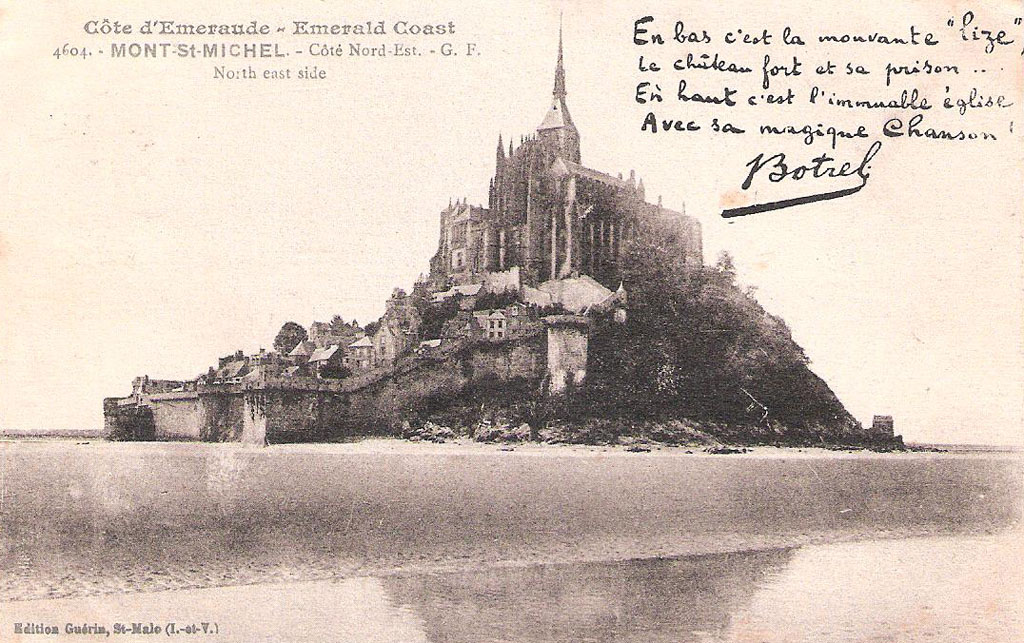 Côte d'Emeraude - Emerald Coast
4604. - MONT-St-MICHEL. - Côté Nord-Est. - G. F.
North east side
En bas c'est la mouvante "lize",
Le château fort et sa prison ...
En haut c'est l'immuable église
Avec sa magique Chanson !
Botrel
Edition Guérin, St-Malo (I.-et-V.)